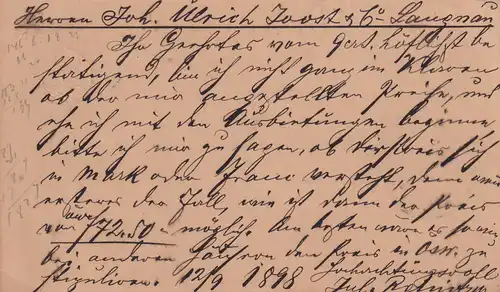 Herren Joh. Ulrich Joost & Co - Langnau
Ihr Geehrtes vom 9 ct. höflichst be
stätigend, bin ich nicht ganz im Klaren
ob der mir angestellten Preise, und
ehe ich mit den Ausbietungen beginne
bitte ich mir zu sagen, ob der Preis sich
in Mark oder Franc versteht, denn wäre
ersteres der Fall, wie ist dann der Preis
von 72.50 möglich. Am besten wäre es
bei anderen den Preis in
stipuliren. 12/9 1898 Hochachtungsvoll
Jul.